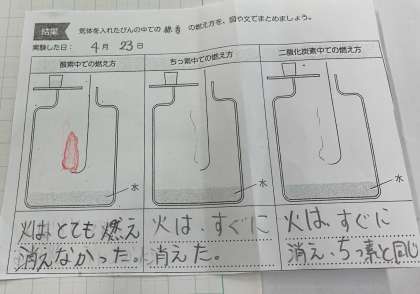 結果 気体を入れたびんの中での線香の燃え方を、図や文でまとめましょう。
実験した日： 4月 23日
酸素中での燃え方
ちっ素中での燃え方
二酸化炭素中での燃え方
水
水
水
火は とても 燃え
消えなかった。
火は、すぐに
消えた。
火は、すぐに
消え、ちっ素と同じ